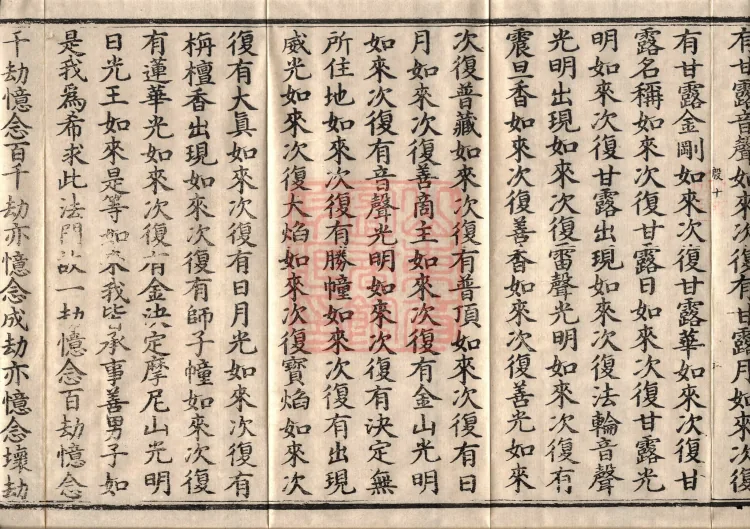 有甘露音聲如來次復有甘露月如來次復
有甘露金剛如來次復甘露華如來次復甘
殷十
露名稱如來次復甘露日如來次復甘露光
明如來次復甘露出現如來次復法輪音聲
光明出現如來次復雷聲光明如來次復有
震旦香如來次復善香如來次復善光如來
次復普藏如來次復有普頂如來次復有日
月如來次復善商主如來次復有金山光明
如來次復有音聲光明如來次復有決定無
所住地如來次復有勝幢如來次復有出現
威光如來次復大焰如來次復寶焰如來次
復有大眞如來次復有日月光如來次復有
栴檀香出現如來次復有師子幢如來次復
有蓮華光如來次復有金決定摩尼山光明
日光王如來是等如來我皆承事善男子如
是我爲希求此法門故一劫憶念百劫憶念
千劫憶念百千劫亦憶念成劫亦憶念壞劫